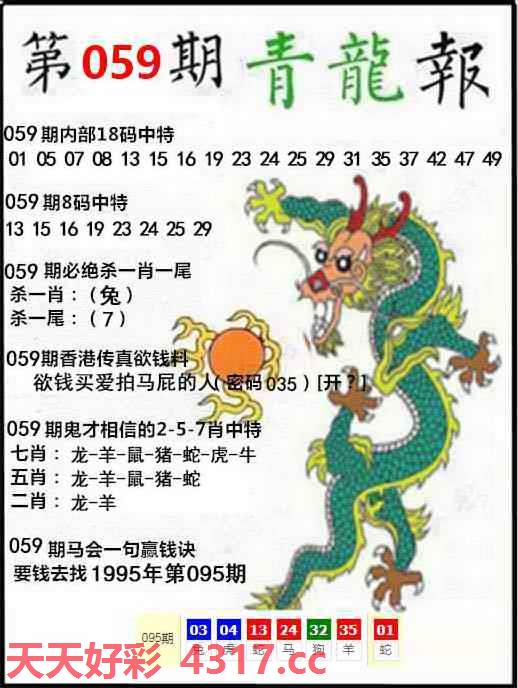 第059期 青龍報
059期内部18码中特
01 05 07 08 13 15 16 19 23 24 25 29 31 35 37 42 47 49
059期8码中特
13 15 16 19 23 24 25 29
059 期必绝杀一肖一尾
杀一肖：（兔）
杀一尾：（7）
059期香港传真欲钱料
欲钱买爱拍马屁的人(密码035）[开？]
059期鬼才相信的2-5-7肖中特
七肖：龙-羊-鼠-猪-蛇-虎-牛
五肖：龙-羊-鼠-猪-蛇
二肖：龙-羊
059 期马会一句赢钱诀
要钱去找1995年第095期
095期 03 04 13 24 32 35 01
兔 虎 蛇 马 狗 羊 蛇
天天好彩 4317.cc